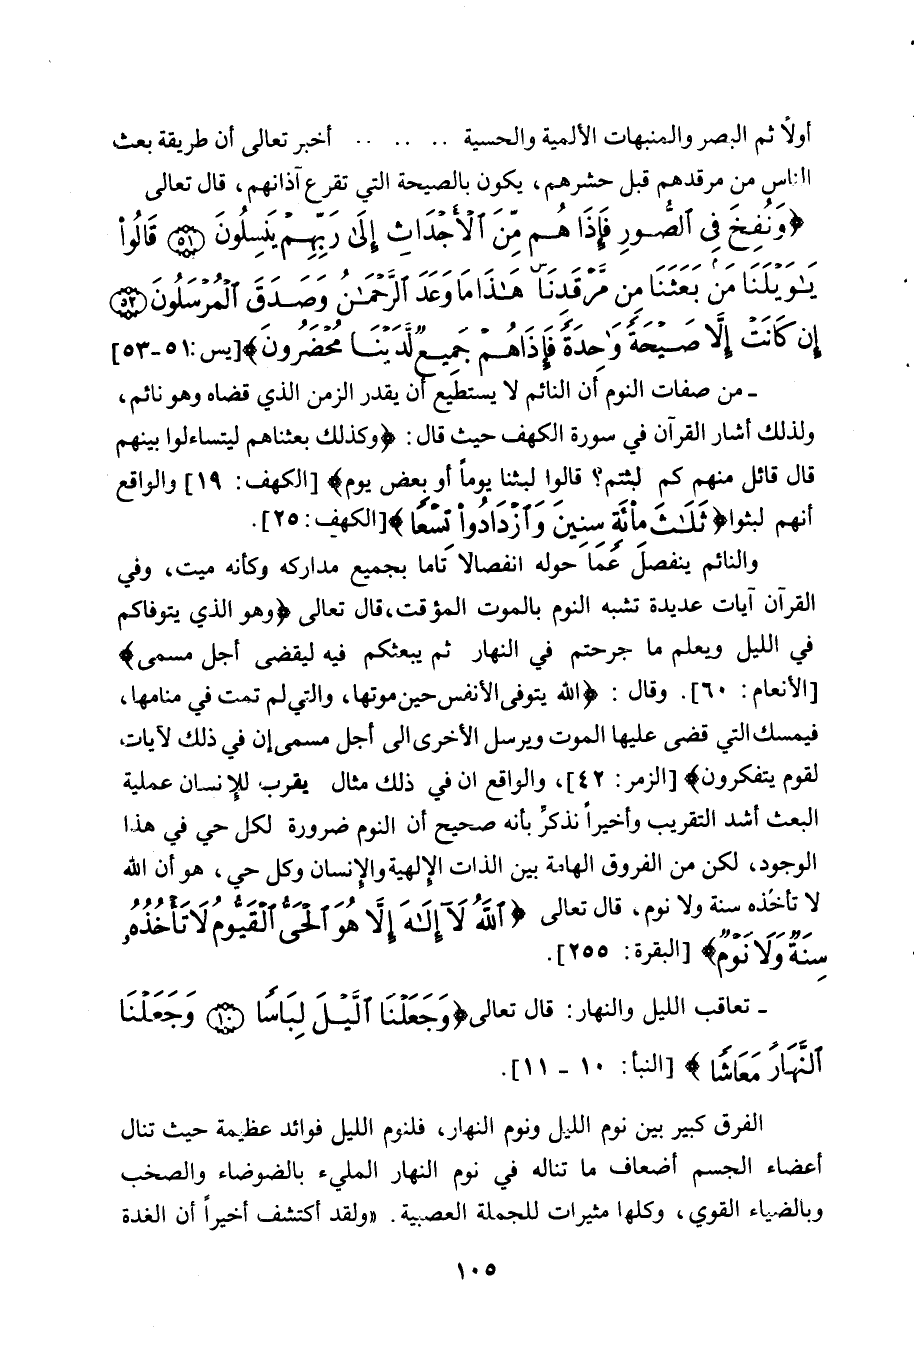 أولاً ثم البصر والمنبهات الألمية والحسية .. .. .. أخبر تعالى أن طريقة بعث
الناس من مرقدهم قبل حشرهم، يكون بالصيحة التي تقرع آذانهم، قال تعالى
﴿وَنُفِخَ فِي ٱلصُّورِ فَإِذَا هُم مِّنَ ٱلْأَجْدَاثِ إِلَىٰ رَبِّهِمْ يَنسِلُونَ ﴿٥١﴾ قَالُوا۟
يَٰوَيْلَنَا مَنۢ بَعَثَنَا مِن مَّرْقَدِنَا ۜ هَٰذَا مَا وَعَدَ ٱلرَّحْمَٰنُ وَصَدَقَ ٱلْمُرْسَلُونَ ﴿٥٢﴾
إِن كَانَتْ إِلَّا صَيْحَةً وَٰحِدَةً فَإِذَا هُمْ جَمِيعٌ لَّدَيْنَا مُحْضَرُونَ﴾ [يس: ٥١ - ٥٣]
ـ من صفات النوم أن النائم لا يستطيع أن يقدر الزمن الذي قضاه وهو نائم،
ولذلك أشار القرآن في سورة الكهف حيث قال: ﴿وكذلك بعثناهم ليتساءلوا بينهم
قال قائل منهم كم لبثتم؟ قالوا لبثنا يوماً أو بعض يوم﴾ [الكهف: ١٩] والواقع
أنهم لبثوا ﴿ثَلَٰثَ مِا۟ئَةٍ سِنِينَ وَٱزْدَادُوا۟ تِسْعًا﴾ [الكهف: ٢٥].
والنائم ينفصل عما حوله انفصالاً تاما بجميع مداركه وكأنه ميت، وفي
القرآن آيات عديدة تشبه النوم بالموت المؤقت، قال تعالى ﴿وهو الذي يتوفاكم
في الليل ويعلم ما جرحتم في النهار ثم يبعثكم فيه ليقضى أجل مسمى﴾
[الأنعام: ٦٠]. وقال : ﴿الله يتوفى الأنفس حين موتها، والتي لم تمت في منامها،
فيمسك التي قضى عليها الموت ويرسل الأخرى الى أجل مسمى إن في ذلك لآيات
لقوم يتفكرون﴾ [الزمر: ٤٢]، والواقع ان في ذلك مثال يقرب للإنسان عملية
البعث أشد التقريب وأخيراً نذكرُ بأنه صحيح أن النوم ضرورة لكل حي في هذا
الوجود، لكن من الفروق الهامة بين الذات الإلهية والإنسان وكل حي، هو أن الله
لا تأخذه سنة ولا نوم، قال تعالى ﴿ٱللَّهُ لَآ إِلَٰهَ إِلَّا هُوَ ٱلْحَىُّ ٱلْقَيُّومُ لَا تَأْخُذُهُۥ
سِنَةٌ وَلَا نَوْمٌ﴾ [البقرة: ٢٥٥].
ـ تعاقب الليل والنهار: قال تعالى ﴿وَجَعَلْنَا ٱلَّيْلَ لِبَاسًا ﴿١٠﴾ وَجَعَلْنَا
ٱلنَّهَارَ مَعَاشًا﴾ [النبأ: ١٠ - ١١].
الفرق كبير بين نوم الليل ونوم النهار، فلنوم الليل فوائد عظيمة حيث تنال
أعضاء الجسم أضعاف ما تناله في نوم النهار المليء بالضوضاء والصخب
وبالضياء القوي، وكلها مثيرات للجملة العصبية. «ولقد أكتشف أخيراً أن الغدة
١٠٥